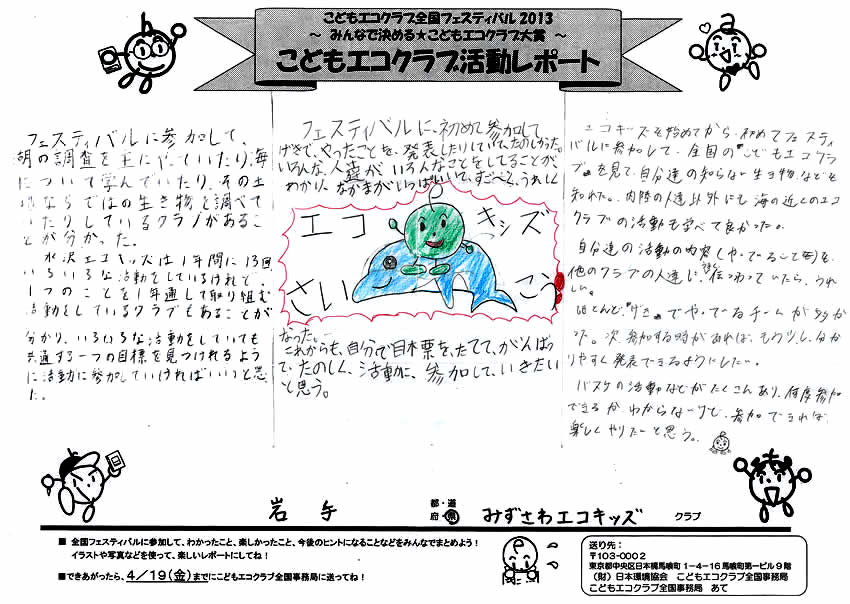 こどもエコクラブ全国フェスティバル 2013
～ みんなで決める★こどもエコクラブ大賞 ～
こどもエコクラブ活動レポート
フェスティバルに参加して、
湖の調査を主にやっていたり、海
について学んでいたり、その土
地ならではの生き物を調べて
いたりしているクラブがあるこ
とが分かった。
水沢エコキッズは1年間に13回
いろいろな活動をしているけれど、
1つのことを1年通して取り組む
活動をしているクラブもあることが
分かり、いろいろな活動をしていても
共通する一つの目標を見つけれるよう
に活動に参加していければいいと思っ
た。
フェスティバルに、初めて参加して、
げきで、やったことを、発表したりしていて、たのしかった。
いろんな人達が、いろんなことをしてることが、
わかり、なかまがいっぱいいて、すごべく、うれしく
エコキッズ
さいこう!!
なった。
これからも、自分で目標を、たてて、がんばっ
て、たのしく、活動に、参加して、いきたい
と思う。
エコキッズを始めてから、初めてフェスティ
バルに参加して、全国の『こどもエコクラ
ブ』を見て、自分達の知らない生き物などを
知れた。内陸の人達以外にも海の近くのエコ
クラブの活動も学べて良かった。
自分達の活動の内容(やっていること等)を、
他のクラブの人達に、伝わっていたら、うれ
しい。
ほとんど、『げき』でやっているチームが多かっ
た。次、参加する時があれば、もう少し、分か
りやすく発表できるようにしたい。
バスケの活動などがたくさんあり、何度参加
できるか、わからないけど、参加できれば、
楽しくやりたいと思う。
岩手
都・道
府・県
みずさわエコキッズ クラブ
■ 全国フェスティバルに参加して、わかったこと、楽しかったこと、今後のヒントになることなどをみんなでまとめよう!
イラストや写真などを使って、楽しいレポートにしてね!
■できあがったら、4/19(金)までにこどもエコクラブ全国事務局に送ってね!
送り先:
〒103-0002
東京都中央区日本橋馬喰町1-4-16 馬喰町第一ビル9階
(財)日本環境協会 こどもエコクラブ全国事務局
こどもエコクラブ全国事務局 あて